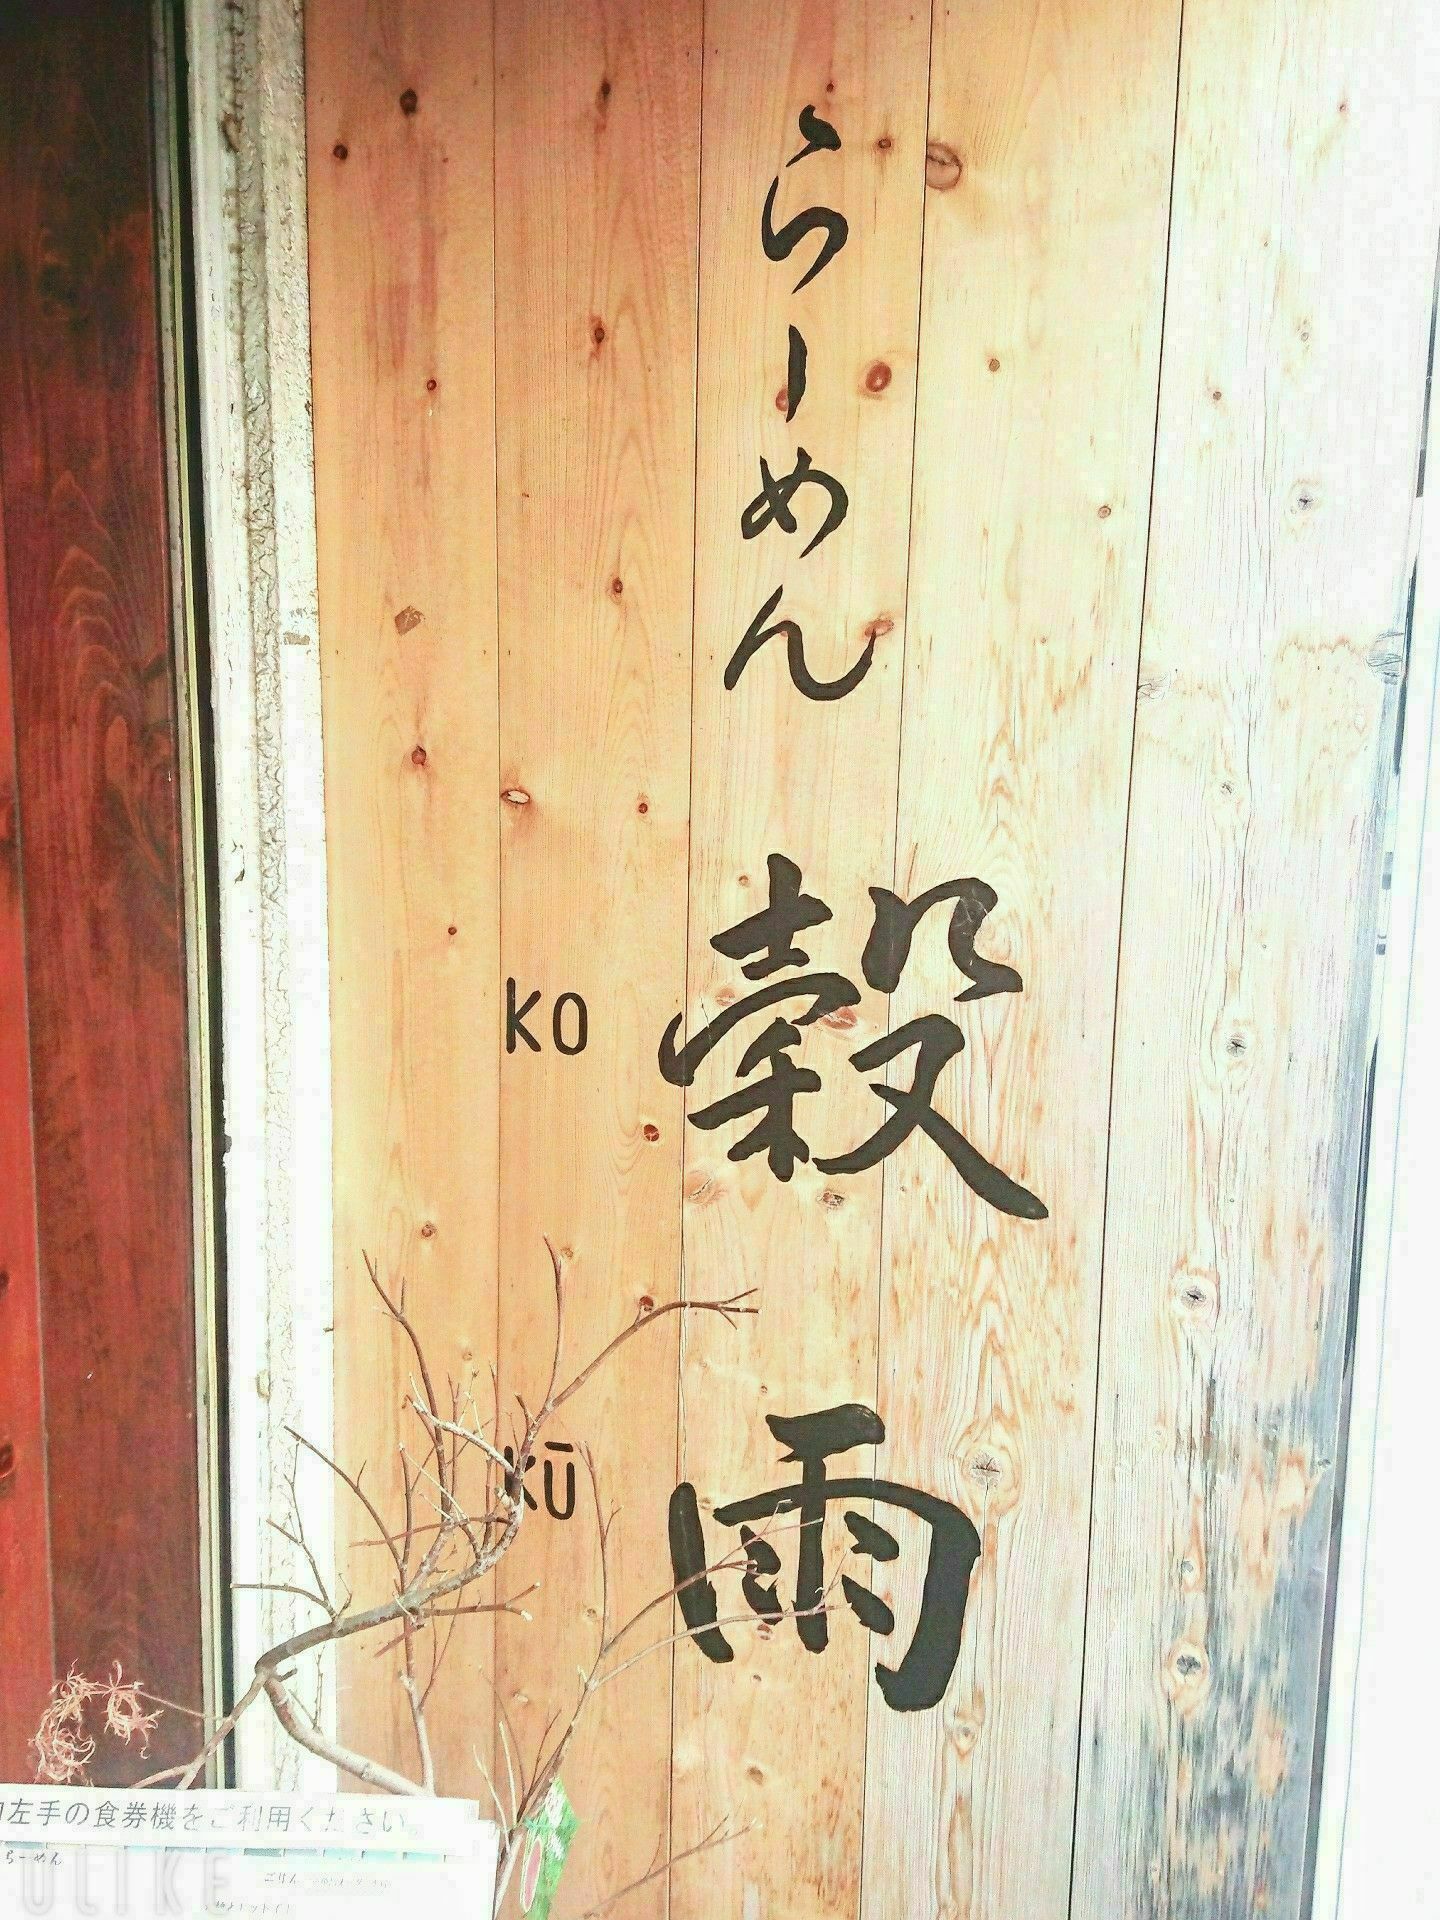 らーめん 穀雨
KO KŪ
左手の食券機をご利用ください。
らーめん
ごはん
ULIKE